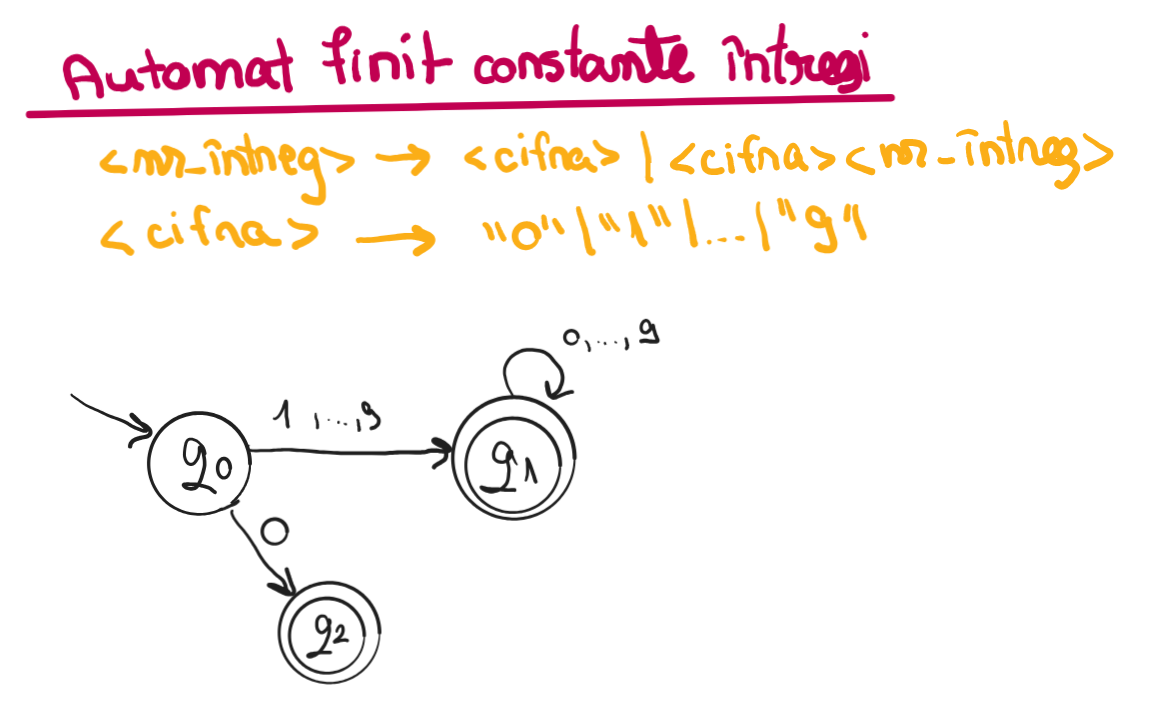 Automat finit constante întregi
<nr_întreg> → <cifra> | <cifra><nr-întreg>
<cifra> → "0"|"1"|...|"9"
0,...,9
1,...,9
q0
q1
0
q2